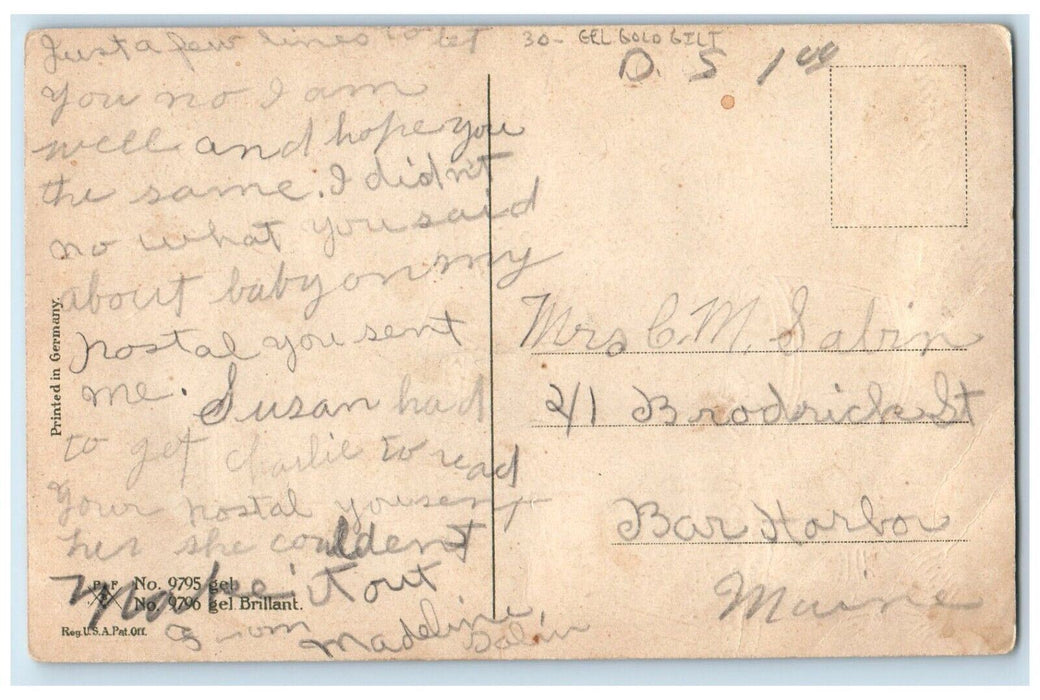 Just a few lines to let
you no I am
well and hope you
the same. I didn't
no what you said
about baby on my
postal you sent
me. Susan had
to get Charlie to read
your postal you sent
her she couldent
make it out
From Madeline
Sabin
Printed in Germany.
P F
No. 9795 gel
No. 9796 gel. Brillant.
Reg. U.S.A. Pat. Off.
30- GEL GOLD GILT
D. S 1 00
Mrs C. M. Sabin
21 Brodrick St
Bar Harbor
Maine